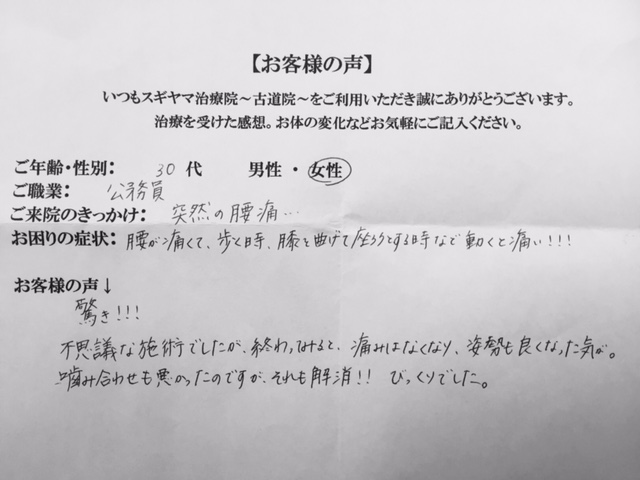 【お客様の声】
いつもスギヤマ治療院～古道院～をご利用いただき誠にありがとうございます。
治療を受けた感想。お体の変化などお気軽にご記入ください。
ご年齢・性別： 30 代 男性 ・ 女性
ご職業： 公務員
ご来院のきっかけ： 突然の腰痛…
お困りの症状： 腰が痛くて、歩く時、膝を曲げて座ろうとする時など動くと痛い!!!
お客様の声↓
驚き!!!
不思議な施術でしたが、終わってみると、痛みはなくなり、姿勢も良くなった気が。
噛み合わせも悪かったのですが、それも解消!! びっくりでした。